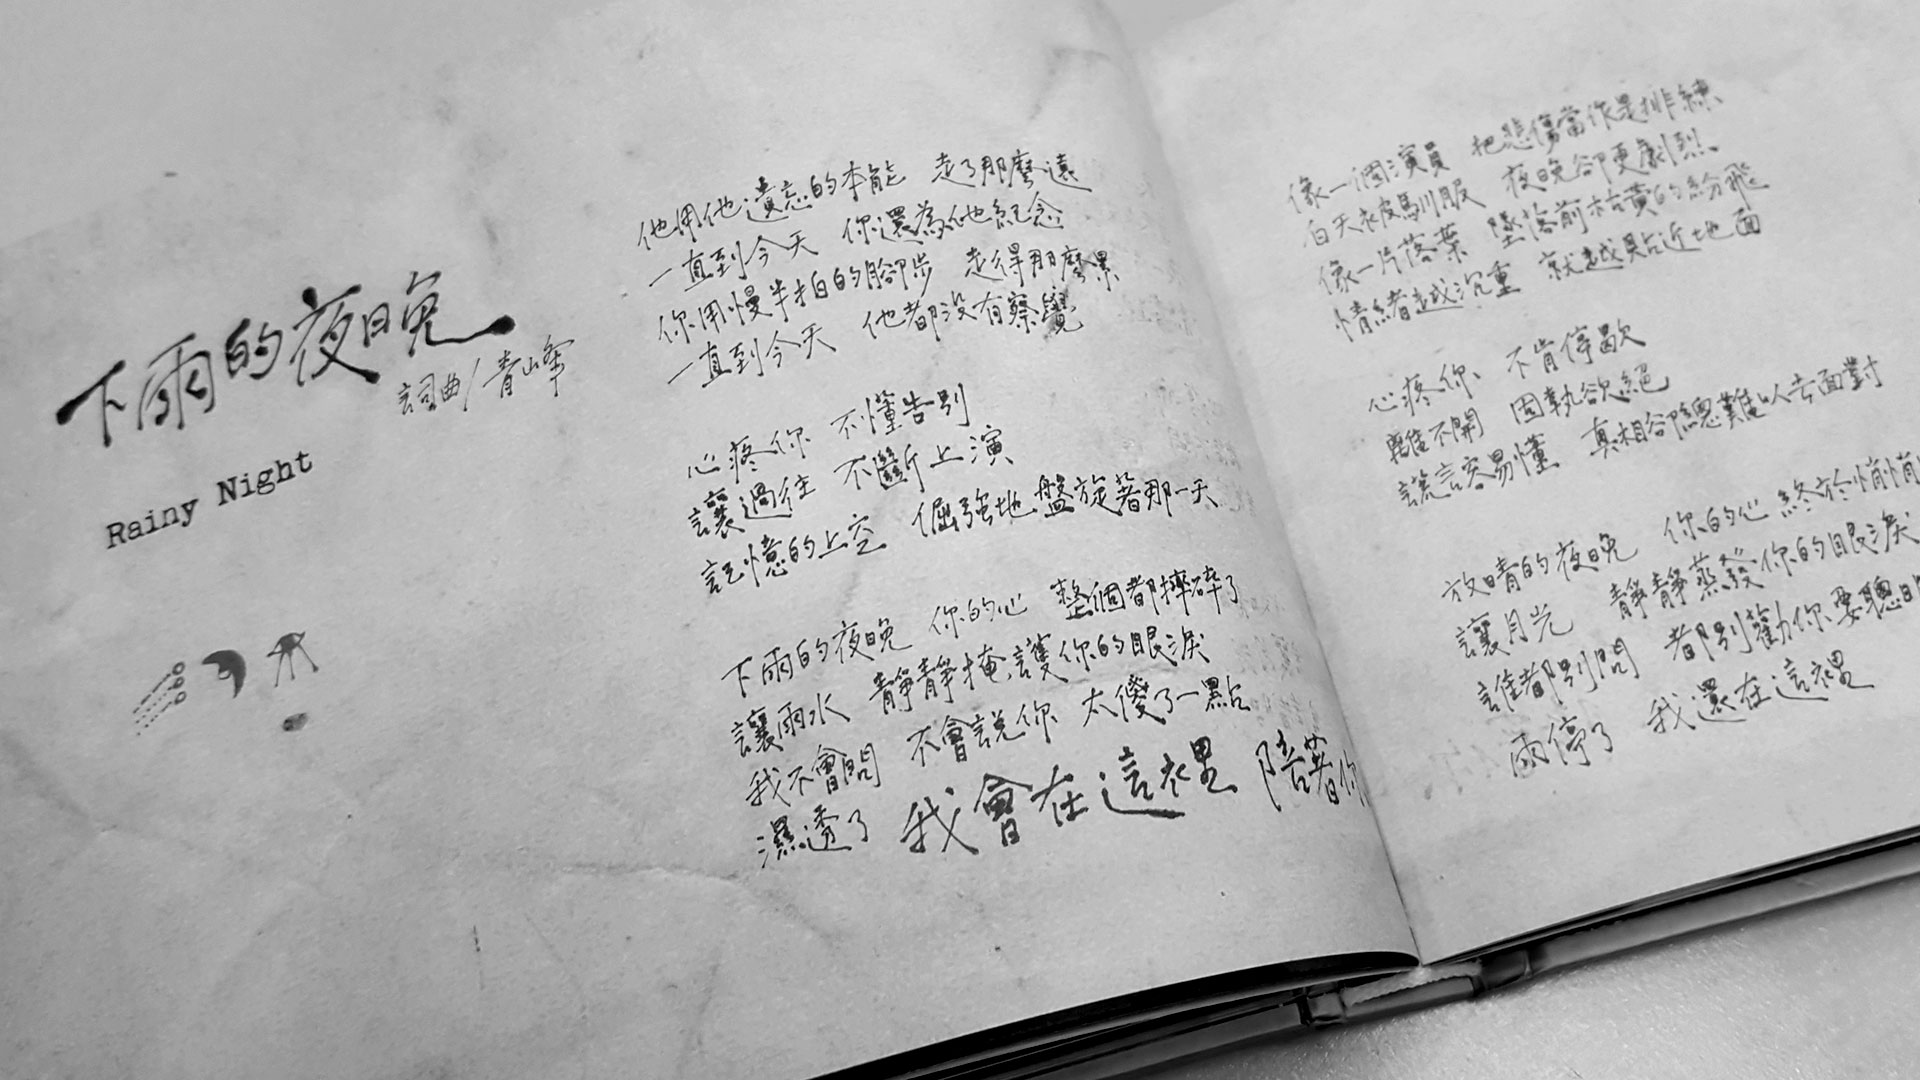 下雨的夜晚
詞曲/青峰
Rainy Night
他用他遺忘的本能 走了那麼遠
一直到今天 你還為他紀念
你用慢半拍的腳步 走得那麼累
一直到今天 他都沒有察覺
心疼你 不懂告別
讓過往 不斷上演
記憶的上空 倔強地盤旋著那一天
下雨的夜晚 你的心 整個都摔碎了
讓雨水 靜靜掩護你的眼淚
我不會問 不會說你 太傻了一點
濕透了 我會在這裡 陪著你
像一個演員 把悲傷當作是排練
白天衣皮馴服 夜晚卻更劇烈
像一片落葉 墜落前枯黃的紛飛
情緒越沉重 就越貼近地面
心疼你 不肯停歇
離不開 固執欲絕
謊言容易懂 真相卻總難以去面對
放晴的夜晚 你的心 終於悄悄
讓月光 靜靜蒸發你的眼淚
誰都別問 都別勸你 要聰明
雨停了 我還在這裡